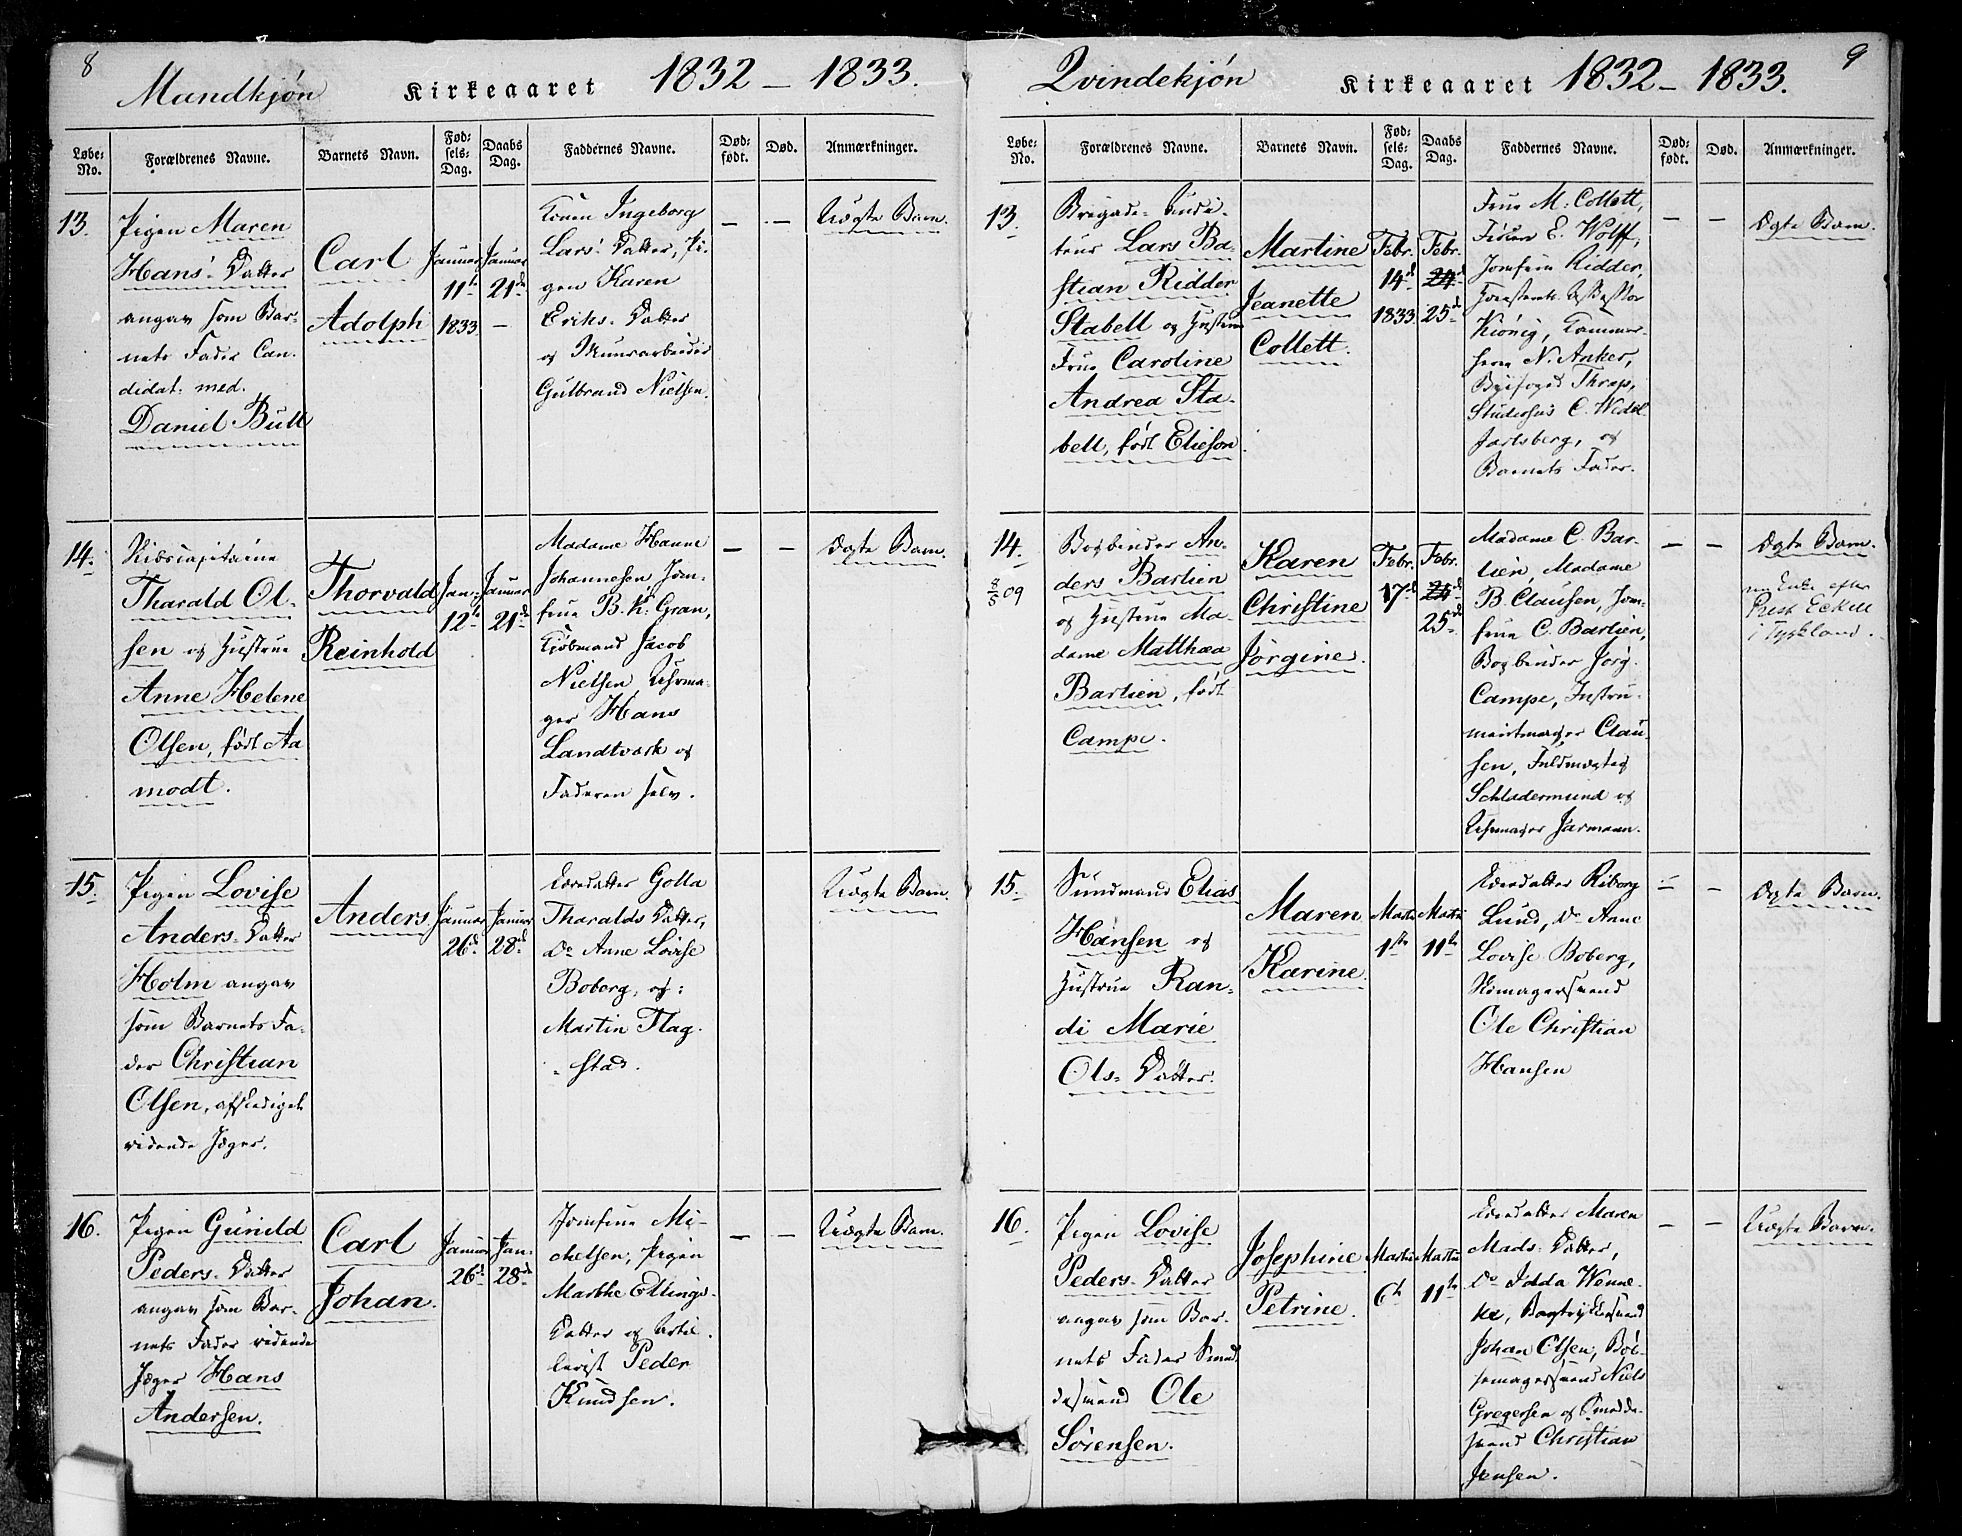 8
Mandkjøn Kirkeaaret 1832 – 1833.
Løbe-No. Forældrenes Navne. Barnets Navn. Fødsels-Dag. Daabs Dag. Faddernes Navne. Dødfødt. Død. Anmærkninger.
13.
Pigen Maren
Hans' Datter
angav som Bar-
nets Fader Can-
didat: med.
Daniel Bull
Carl
Adolph
Januar
11te
1833
Januar
21de
–
Konen Ingeborg
Lars' Datter, Pi-
gen Karen
Eriks-Datter
og Muurarbeider
Gulbrand Nielsen.
– –
Uægte Barn.
14.
Skibscapitaine
Tharald Ol-
sen og Hustrue
Anne Helene
Olsen, født Aa
modt.
Thorvald
Reinhold
Jan:
12te
Januar
21de
Madame Hanne
Johannesen, Jom-
frue B. K. Gran,
Kjøbmand Jacob
Nielsen, Uhrma-
ger Hans
Landtvark og
Faderen selv.
– –
Ægte Barn.
15.
Pigen Lovise
Anders-Datter
Holm angav
som Barnets Fa-
der Christian
Olsen, afskediget
ridende Jæger.
Anders
Januar
26de
Januar
28de
Golla
Tharalds Datter,
Do Anne Lovise
Boberg, og
Martin Flag-
stad.
Uægte Barn.
16.
Pigen Gunild
Peders-Datter
angav som Bar-
nets Fader ridende
Jæger Hans
Andersen.
Carl
Johan.
Januar
26de
Jan:
28de
Jomfrue Mi-
chelsen, Pigen
Marthe Ellings-
Datter og Artil-
lerist Peder
Knudsen.
– –
Uægte Barn.
9
Qvindekjøn Kirkeaaret 1832 – 1833.
Løbe-No. Forældrenes Navne. Barnets Navn. Fødsels-Dag. Daabs Dag. Faddernes Navne. Dødfødt. Død. Anmærkninger.
13.
Brigade-Audi-
teur Lars Ba-
stian Ridder
Stabell og Hustrue
Frue Caroline
Andrea Sta-
bell, født Elieson
Martine
Jeanette
Collett.
Febr.
14de
1833
Febr.
24de
25de
Frue M. Collett,
E. Wolff,
Jomfrue Ridder,
Kiønig, Kammer-
herre N. Anker,
Byefoged Thrap,
Studiosus C. Wedel
Jarlsberg, og
Barnets Fader.
– –
Ægte Barn.
14.
8/5 09
Bogbinder An-
ders Bartien
og Hustrue Ma-
dame Matthæa
Bartien, født
Campe.
Karen
Christine
Jørgine.
Febr.
17de
Febr.
24de
25de
Madame C. Bar-
tien, Madame
B. Clausen, Jom-
frue C. Bartien,
Bogbinder Jørg.
Campe, Instru-
mentmager Clau-
sen, Fuldmægtig
Schladermund og
Uhrmager Jarmann.
– –
Ægte Barn.
Enke efter
Præst Eckell
i Tyskland.
15.
Sundmand Elias
Hansen og
Hustrue Ran-
di Marie
Ols-Datter.
Maren
Karine
Martii
1ste
Martii
11te
Riborg
Lund, Do Anne
Lovise Boberg,
Skomagersvend
Ole Christian
Hansen
– –
Ægte Barn.
16.
Pigen Lovise
Peders-Datter
angav som Bar-
nets Fader Smed-
desvend Ole
Sörensen.
Josephine
Petrine.
Martii
6te
Martii
11te
Maren
Mads-Datter,
Do Idda Wenne-
ke, Bogtrykkersvend
Johan Olsen, Bøs-
semagersvend Niels
Gregersen og Smedde-
svend Christian
Jensen.
– –
Uægte Barn.